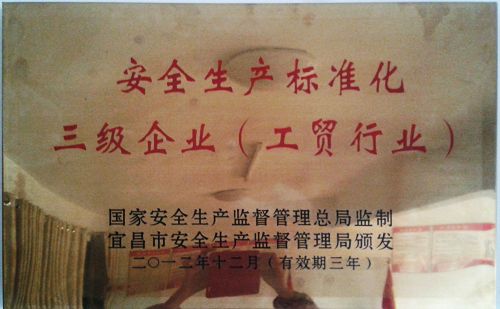 安全生产标准化
三级企业（工贸行业）
国家安全生产监督管理总局监制
宜昌市安全生产监督管理局颁发
二〇一二年十二月（有效期三年）